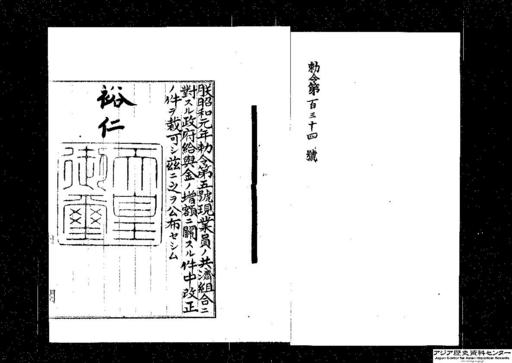 勅令第百三十四號
朕昭和元年勅令第五號現業員ノ共濟組合ニ
對スル政府給與金ノ増額ニ關スル件中改正
ノ件ヲ裁可シ茲ニ之ヲ公布セシム
裕仁
天皇
御璽
アジア歴史資料センター
Japan Center for Asian Historical Records